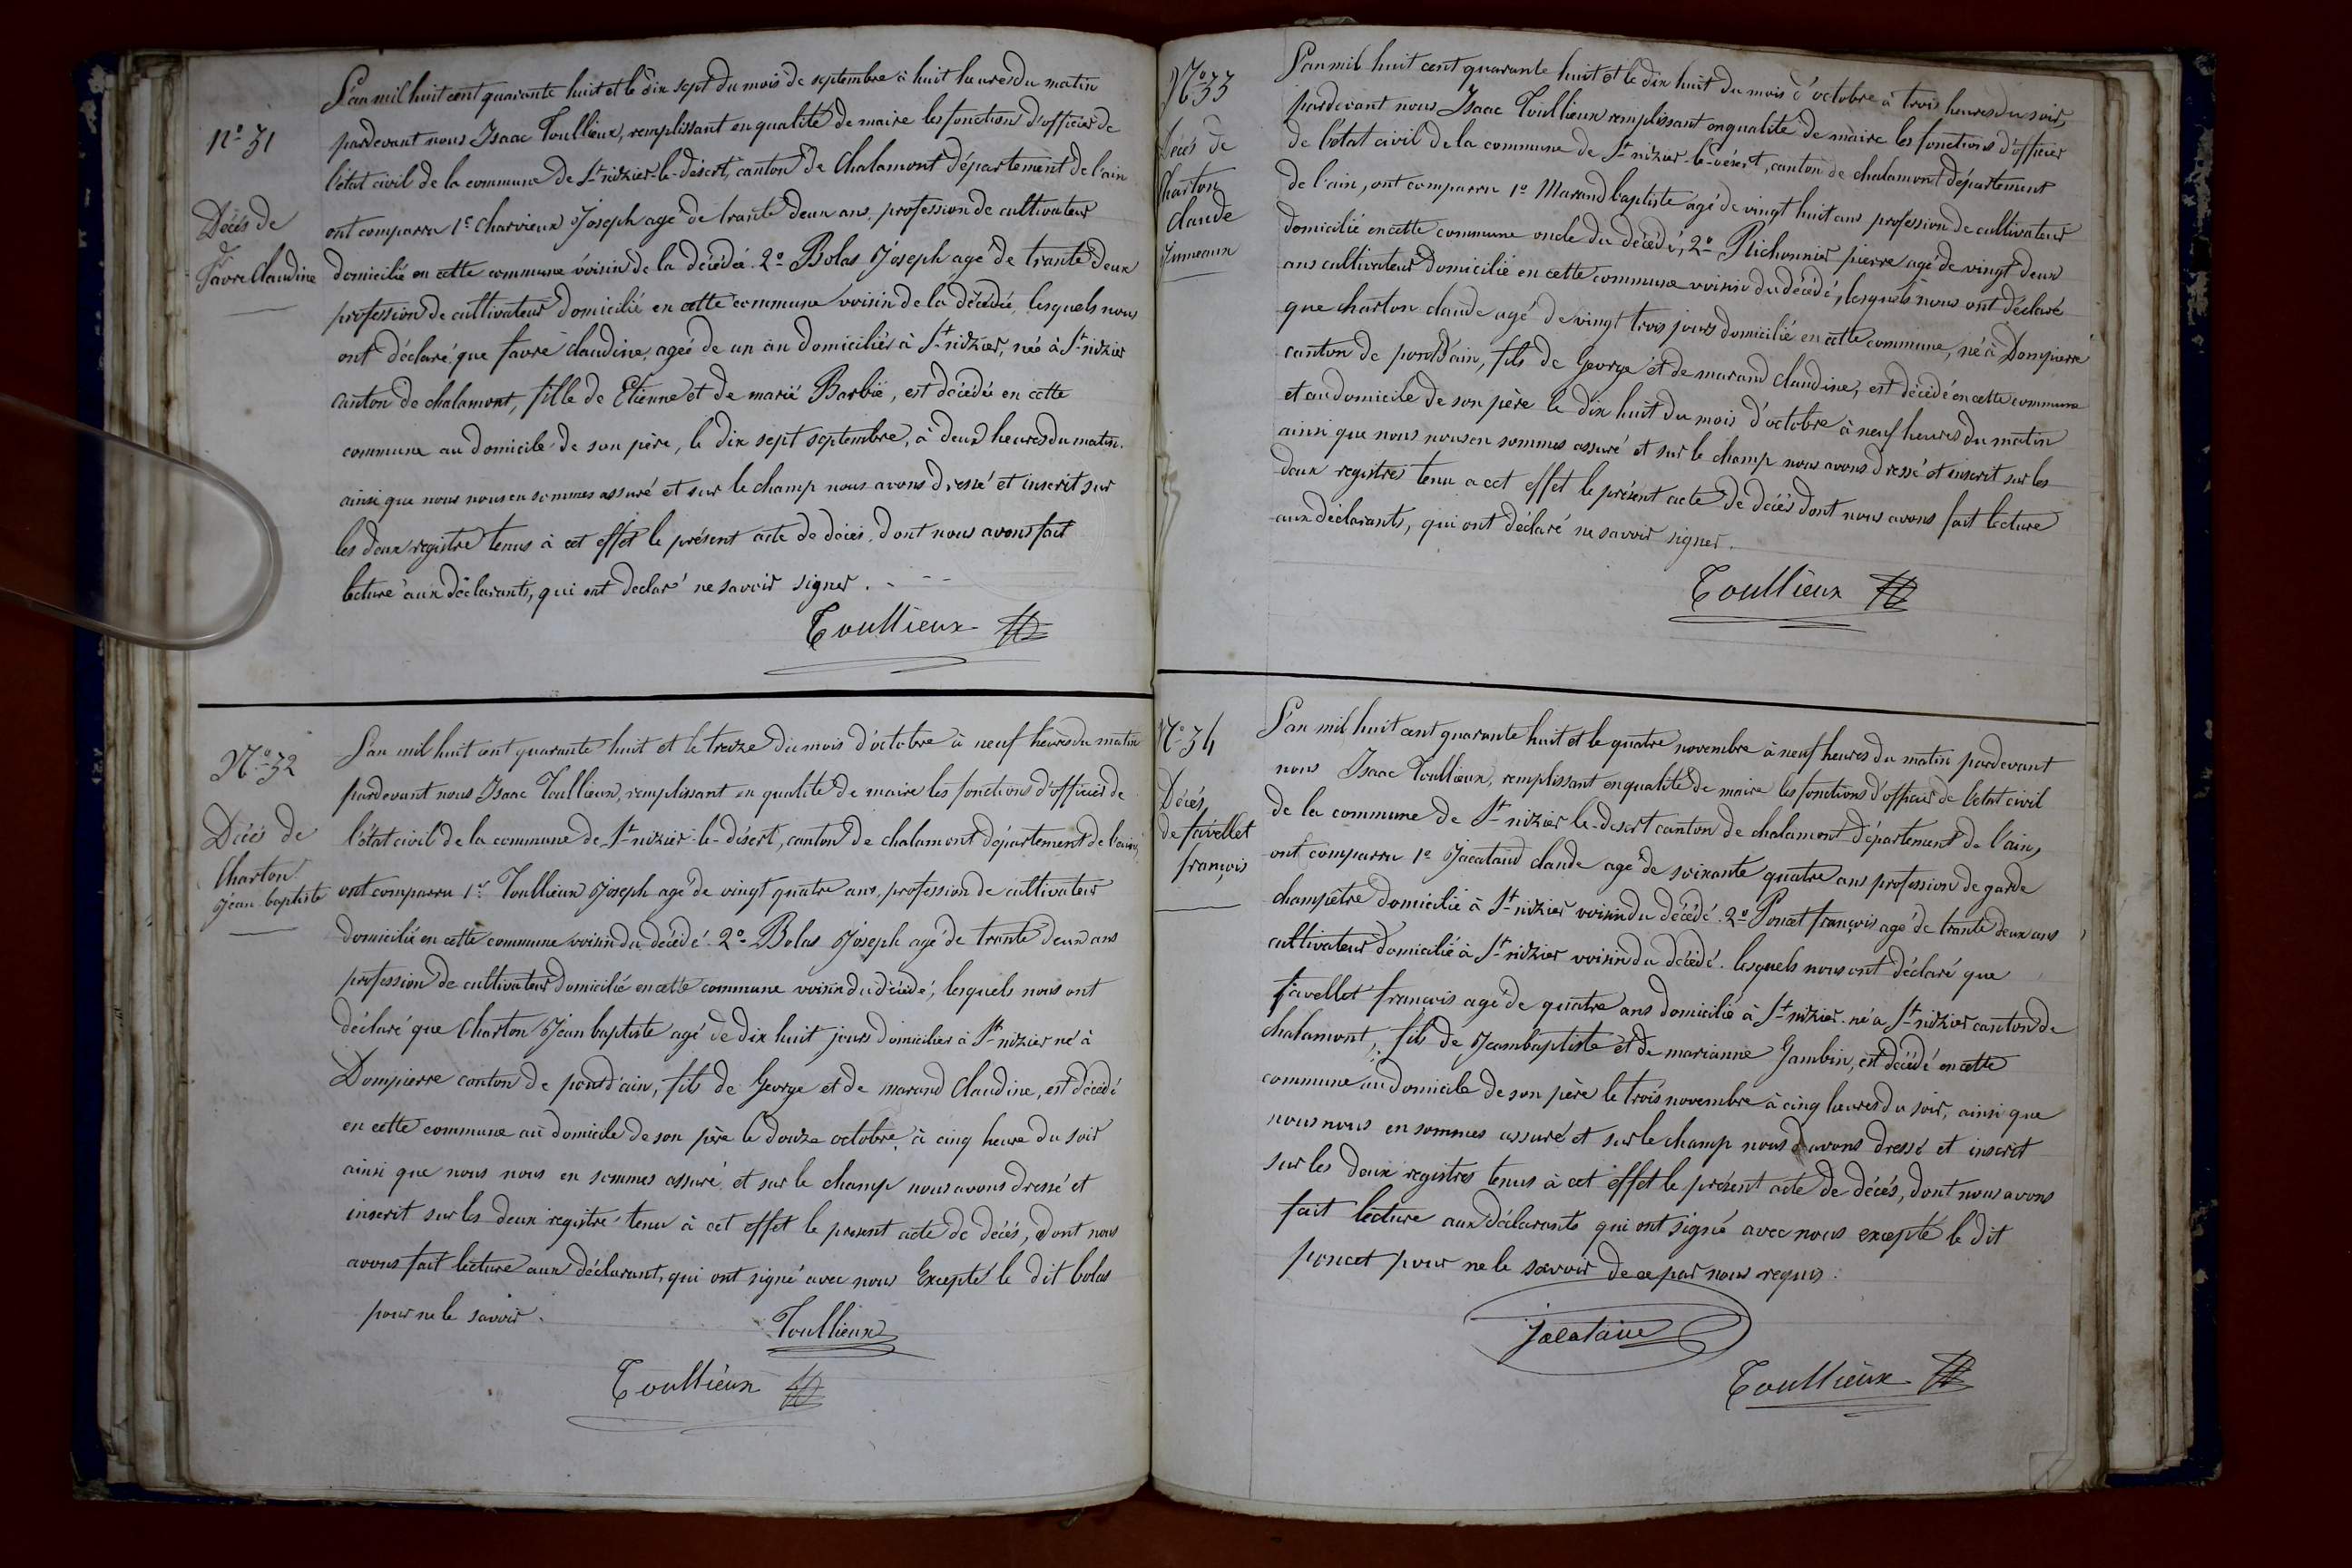 N.° 31
Décès de
Favre Claudine
L'an mil huit cent quarante huit et le dix sept du mois de septembre à huit heures du matin
pardevant nous Isaac Toullieux, remplissant en qualité de maire les fonction d'officier de
l'état civil de la commune de St nizier-le-désert, canton de Chalamont département de l'ain
ont comparu 1° Charvieux Joseph agé de trante deux ans, profession de cultivateur
domicilié en cette commune voisin de la décédée. 2° Bolas Joseph agé de trante deux
profession de cultivateur domicilié en cette commune voisin de la décédée, lesquels nous
ont déclaré que favre claudine, agée de un an domiciliée à St nizier, née à St nizier
canton de chalamont, fille de Etienne et de marie Barbié, est décédée en cette
commune au domicile de son père, le dix sept septembre, à deux heures du matin.
ainsi que nous nous en sommes assuré et sur le champ nous avons dressé et inscrit sur
les deux registre tenus à cet effet le présent acte de décès, dont nous avons fait
lecture aux déclarants, qui ont declaré ne savoir signer.
Toullieux
N.° 32
Décès de
Charton
jean baptiste
L'an mil huit cent quarante huit et le treize du mois d'octobre à neuf heures du matin
pardevant nous Isaac Toullieux, remplissant en qualité de maire les fonctions d'officier de
l'état civil de la commune de St nizier-le-désert, canton de chalamont département de l'ain,
ont comparu 1er Toullieux Joseph agé de vingt quatre ans, profession de cultivateur
domicilié en cette commune voisin du décédé 2° Bolas Joseph agé de trante deux ans
profession de cultivateur domicilié en cette commune voisin du décédé, lesquels nous ont
déclaré que Charton Jean baptiste agé de dix huit jours domicilier à St nizier né à
Dompierre canton de pontd'ain, fils de George et de marand Claudine, est décédé
en cette commune au domicile de son père le douze octobre, à cinq heure du soir
ainsi que nous nous en sommes assuré et sur le champ nous avons dressé et
inscrit sur les deux registre tenu à cet effet le present acte de décès, dont nous
avons fait lecture aux déclarant, qui ont signé avec nous Excepté le dit bolas
pour ne le savoir.
Toullieux
Toullieux
N.° 33
Décès de
Charton
claude
Jumeaux
L'an mil huit cent quarante huit et le dix huit du mois d'octobre à trois heures du soir,
pardevant nous Isaac Toullieux remplissant en qualité de maire les fonctions d'officier
de l'état civil de la commune de St nizier-le-désert, canton de chalamont département
de l'ain, ont comparu 1° Marand baptiste âgé de vingt huit ans profession de cultivateur
domicilié en cette commune oncle du décédé, 2° Richonnier pierre agé de vingt deux
ans cultivateur domicilié en cette commune voisin du décédé, lesquels nous ont déclaré
que charton claude agé de vingt trois jours domicilié en cette commune, né à Dompierre
canton de pontd'ain, fils de George et de marand claudine, est décédé en cette commune
et au domicile de son père le dix huit du mois d'octobre à neuf heures du matin
ainsi que nous nous en sommes assuré et sur le champ nous avons dressé et inscrit sur les
deux registres tenu a cet effet le présent acte de décès dont nous avons fait lecture
aux déclarants, qui ont déclaré ne savoir signer.
Toullieux
N.° 34
Décès
de favellet
françois
L'an mil huit cent quarante huit et le quatre novembre à neuf heures du matin pardevant
nous Isaac Toullieux, remplissant en qualité de maire les fonctions d'officier de l'etat civil
de la commune de St nizier le-desert canton de chalamont département de l'ain,
ont comparu 1° Jacataud claude agé de soixante quatre ans profession de garde
champêtre domicilié à St nizier voisin du décédé. 2° Poncet françois agé de trante deux ans
cultivateur domicilié à St nizier voisin du décédé. lesquels nous ont déclaré que
favellet françois agé de quatre ans domicilié à St nizier né a St nizier canton de
chalamont, fils de Jeambaptiste et de marianne Jambin, est décédé en cette
commune au domicile de son père le trois novembre à cinq heures du soir, ainsi que
nous nous en sommes assuré et sur le champ nous avons dressé et inscrit
sur les deux registres tenus à cet effet le présent acte de décés, dont nous avons
fait lecture aux déclarants qui ont signé avec nous excepté le dit
poncet pour ne le savoir de ce par nous requis.
Toullieux